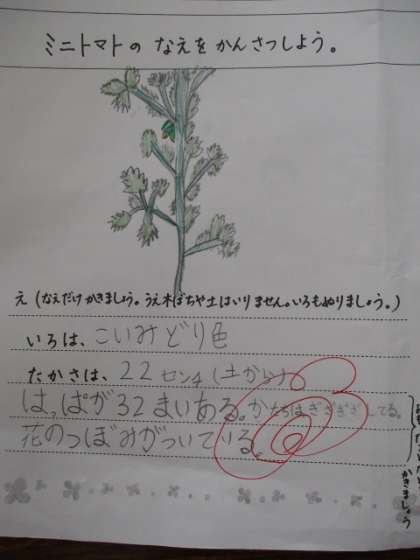 ミニトマトの なえを かんさつしよう。
え(なえだけかきましょう。うえ木ばちや土はいりません。いろもぬりましょう。)
いろは、こいみどり色
たかさは、22センチ(土から)
はっぱが32まいある。かたちはぎざぎざしてる。
花のつぼみがついている。
かきましょう